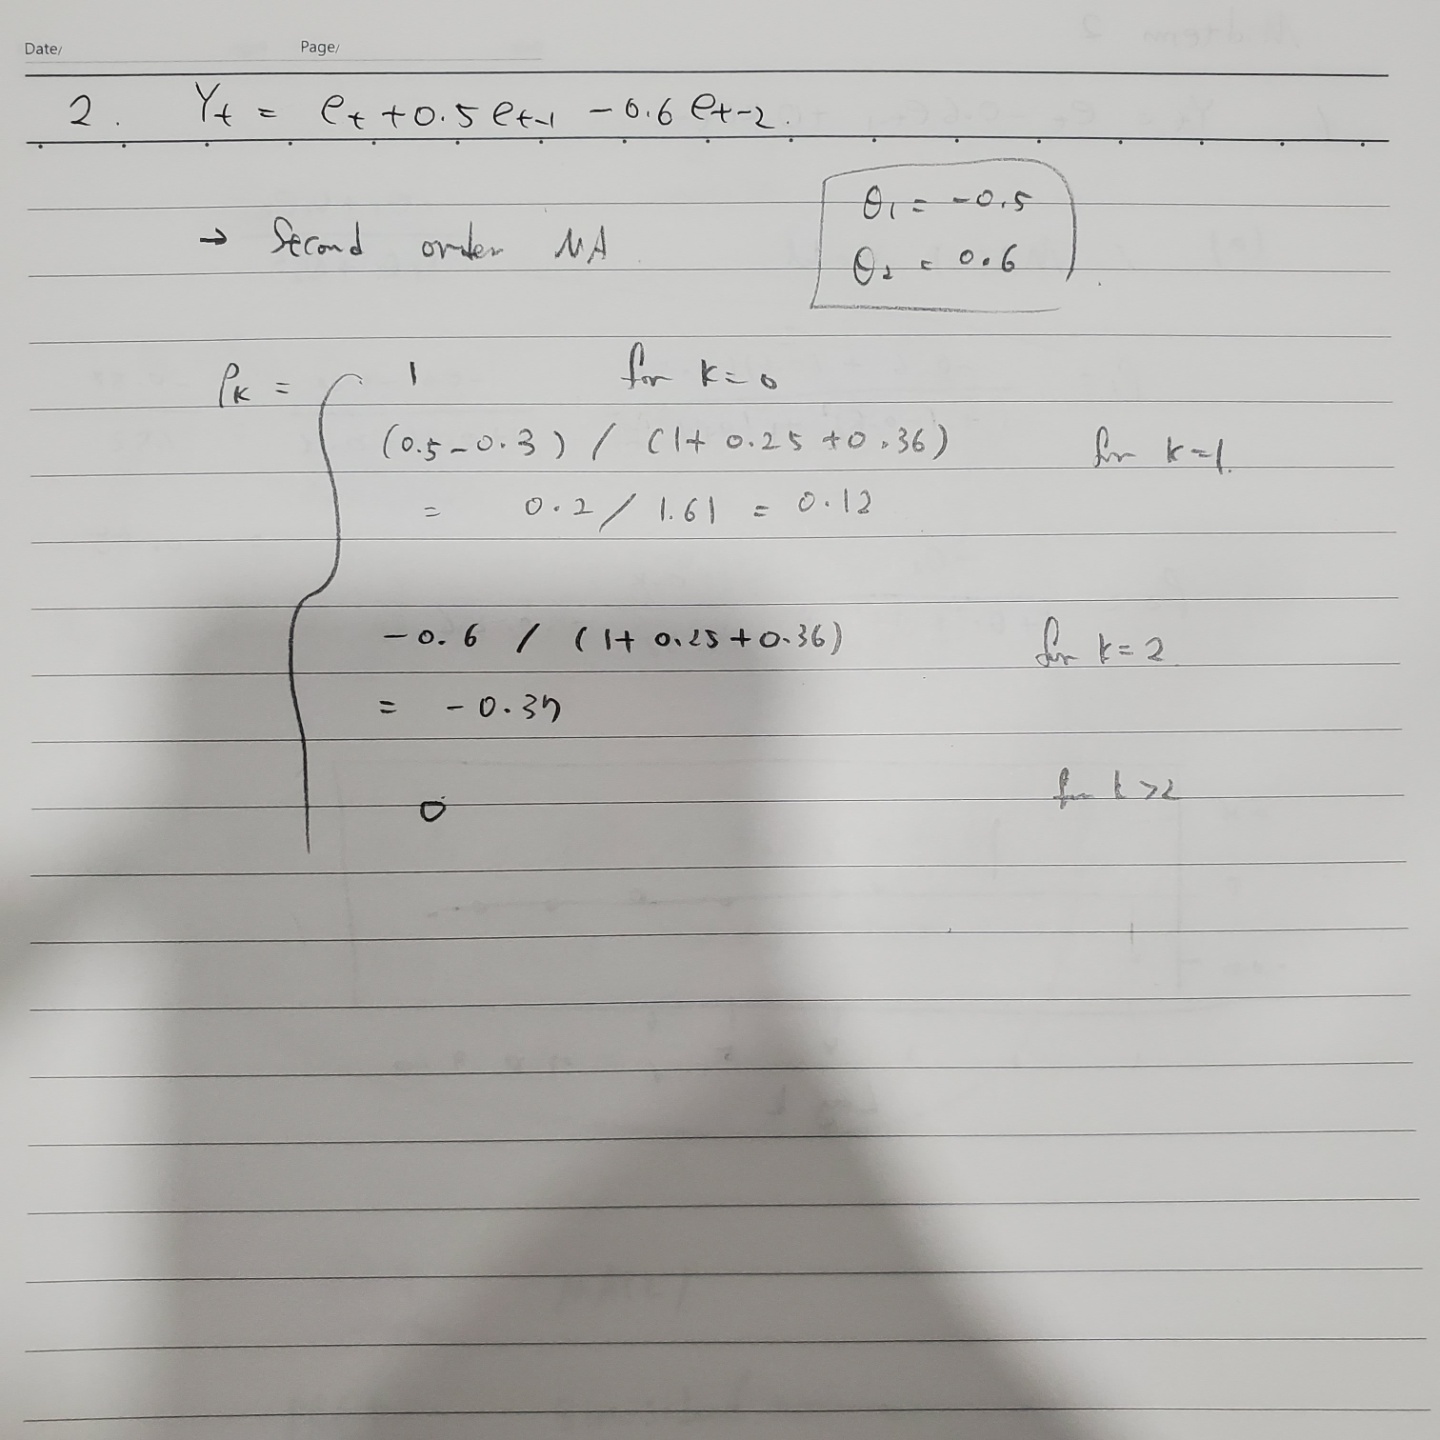 Date/ Page/
2. Yt = et + 0.5 et-1 - 0.6 et-2.
→ Second order MA
θ1 = -0.5
θ2 = 0.6
ρk = 1 for k=0
(0.5-0.3) / (1+ 0.25 +0.36) for k=1.
= 0.2 / 1.61 = 0.12
-0.6 / (1+ 0.25+0.36) for k=2
= -0.37
0 for k>2